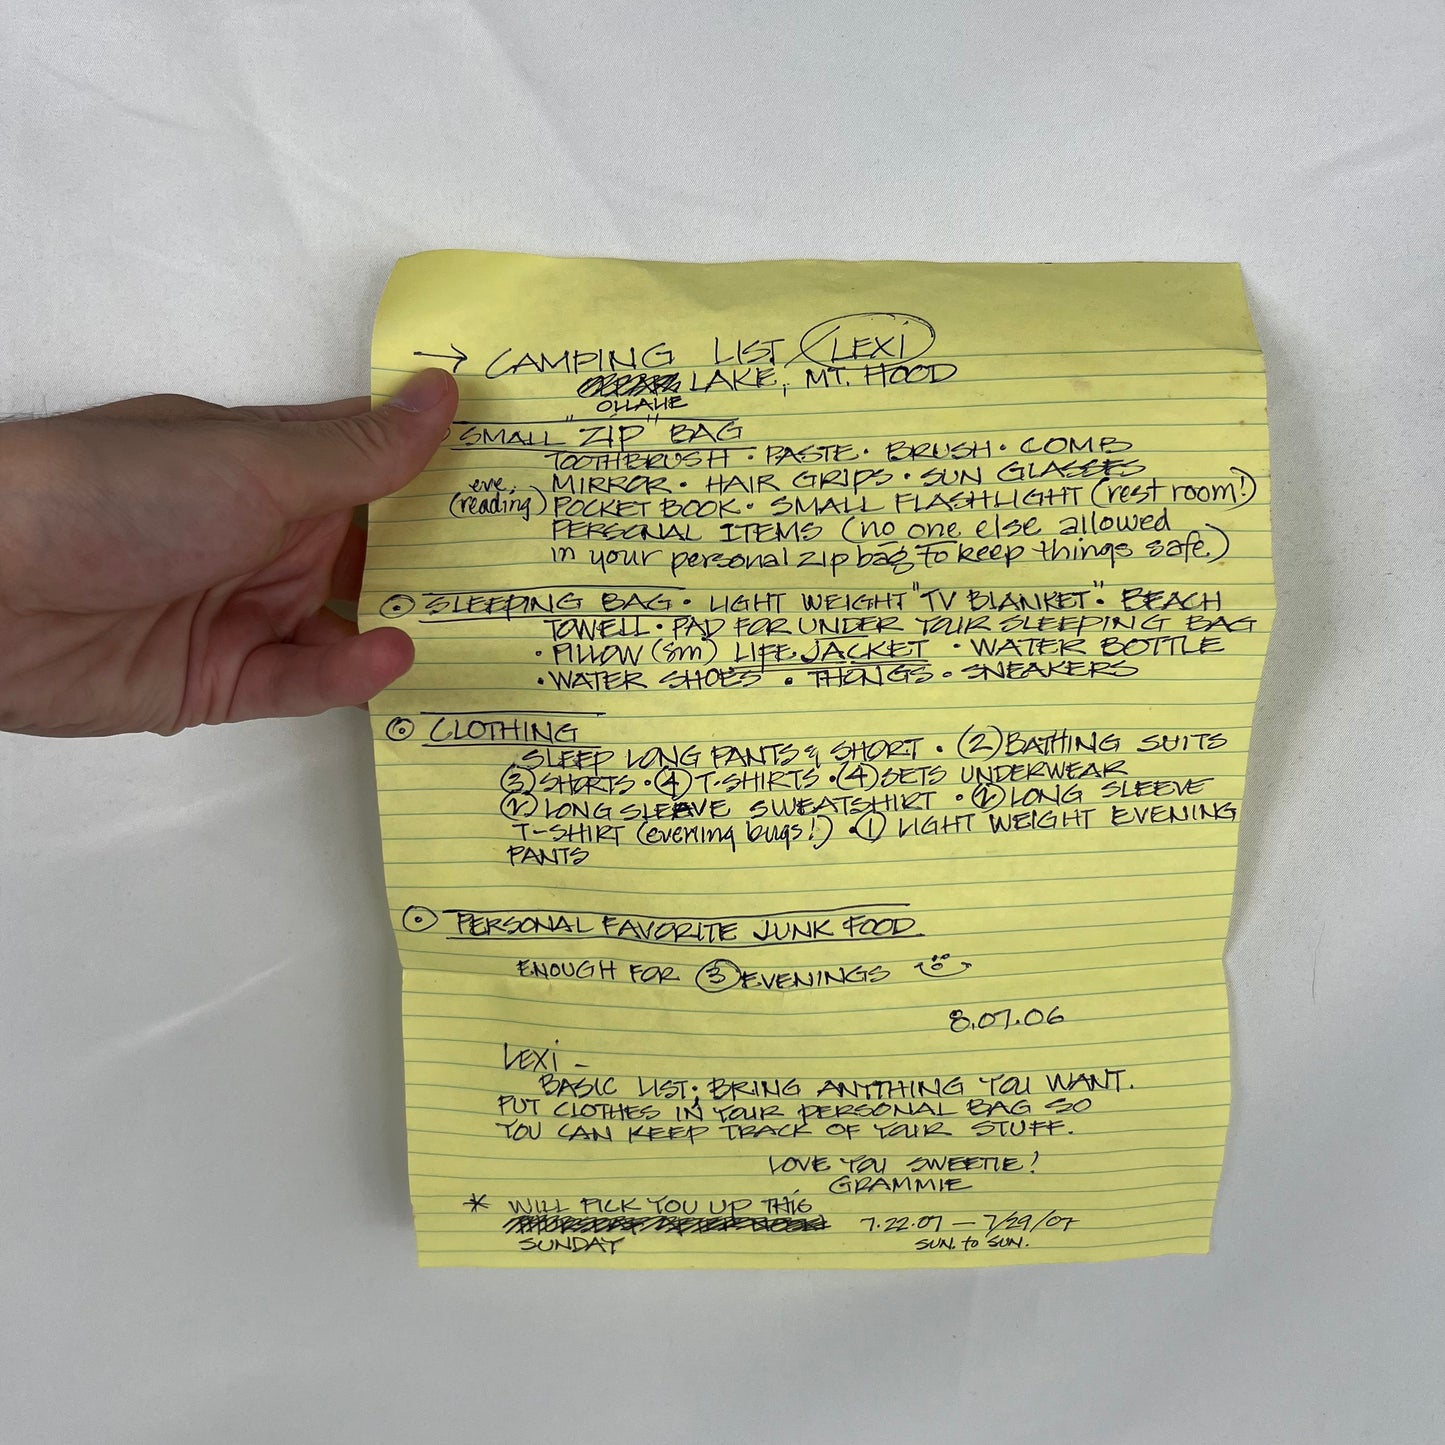 → CAMPING LIST LEXI
LAKE, MT. HOOD
OLLALIE
SMALL "ZIP" BAG
TOOTHBRUSH · PASTE · BRUSH · COMB
MIRROR · HAIR GRIPS · SUN GLASSES
eve. (reading) POCKET BOOK · SMALL FLASHLIGHT (rest room!)
PERSONAL ITEMS (no one else allowed
in your personal zip bag to keep things safe.)
⊙ SLEEPING BAG · LIGHT WEIGHT "TV BLANKET" · BEACH
TOWELL · PAD FOR UNDER YOUR SLEEPING BAG
· PILLOW (sm) LIFE JACKET · WATER BOTTLE
· WATER SHOES · THONGS · SNEAKERS
⊙ CLOTHING
SLEEP LONG PANTS & SHORT · (2) BATHING SUITS
(3) SHORTS · (4) T-SHIRTS · (4) SETS UNDERWEAR
(2) LONG SLEAVE SWEATSHIRT · (2) LONG SLEEVE
T-SHIRT (evening bugs!) · (1) LIGHT WEIGHT EVENING
PANTS
⊙ PERSONAL FAVORITE JUNK FOOD
ENOUGH FOR (3) EVENINGS
8.07.06
LEXI –
BASIC LIST; BRING ANYTHING YOU WANT.
PUT CLOTHES IN YOUR PERSONAL BAG SO
YOU CAN KEEP TRACK OF YOUR STUFF.
LOVE YOU SWEETIE!
GRAMMIE
* WILL PICK YOU UP THIS
7.22.07 – 7/29/07
SUNDAY SUN. to SUN.